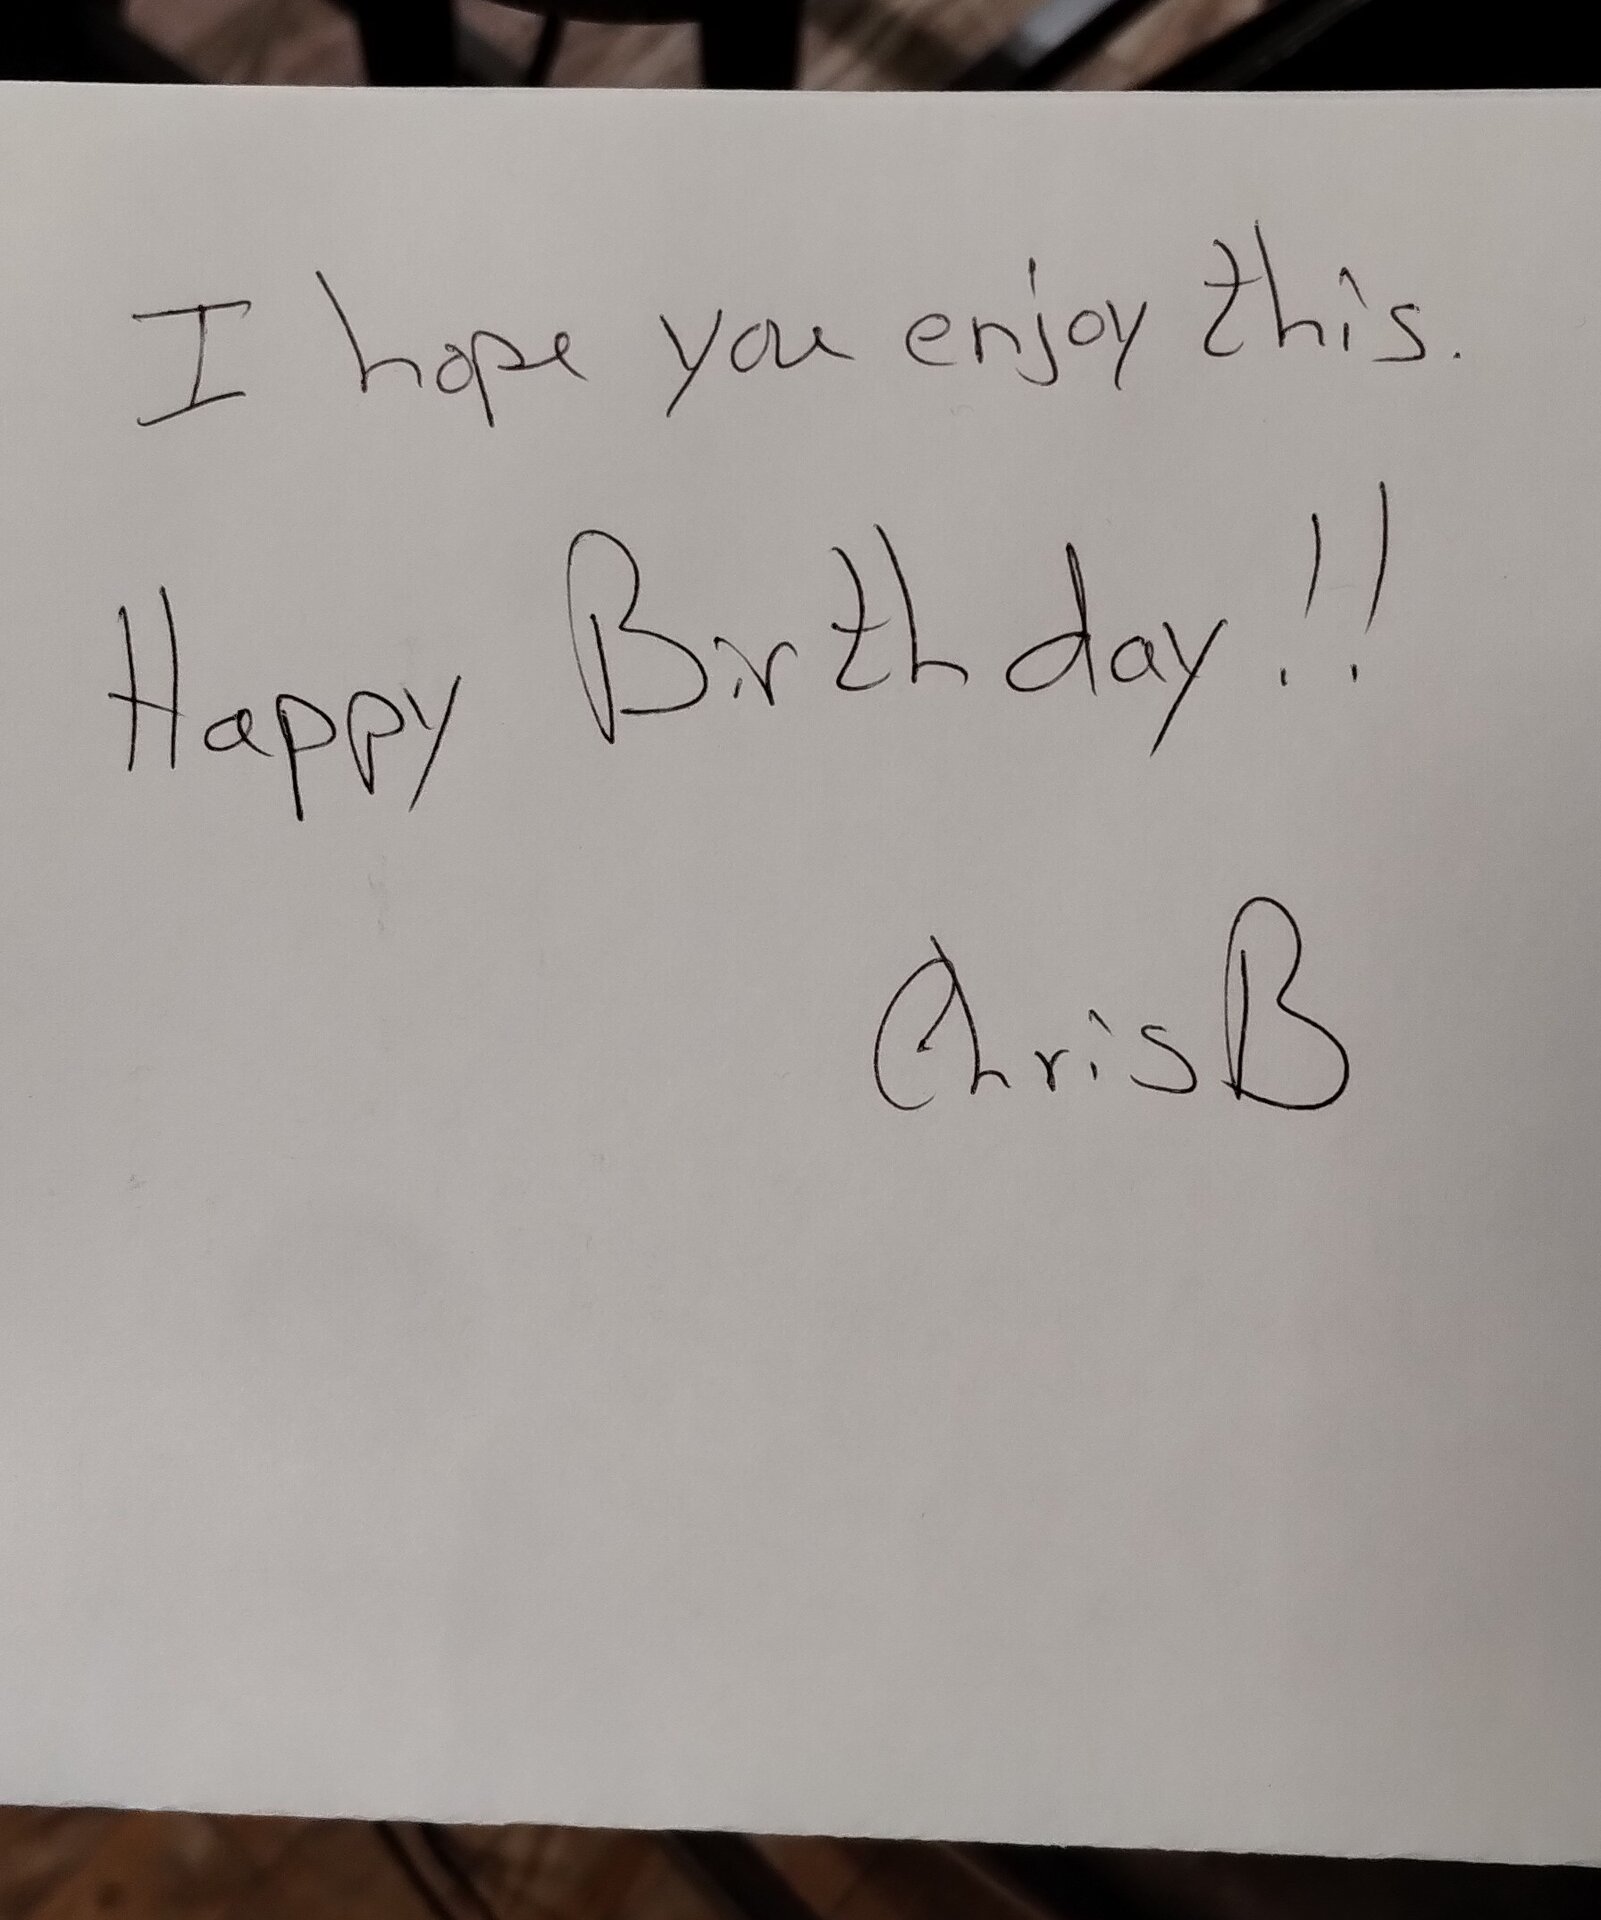 I hope you enjoy this.
Happy Birthday!!
Chris B